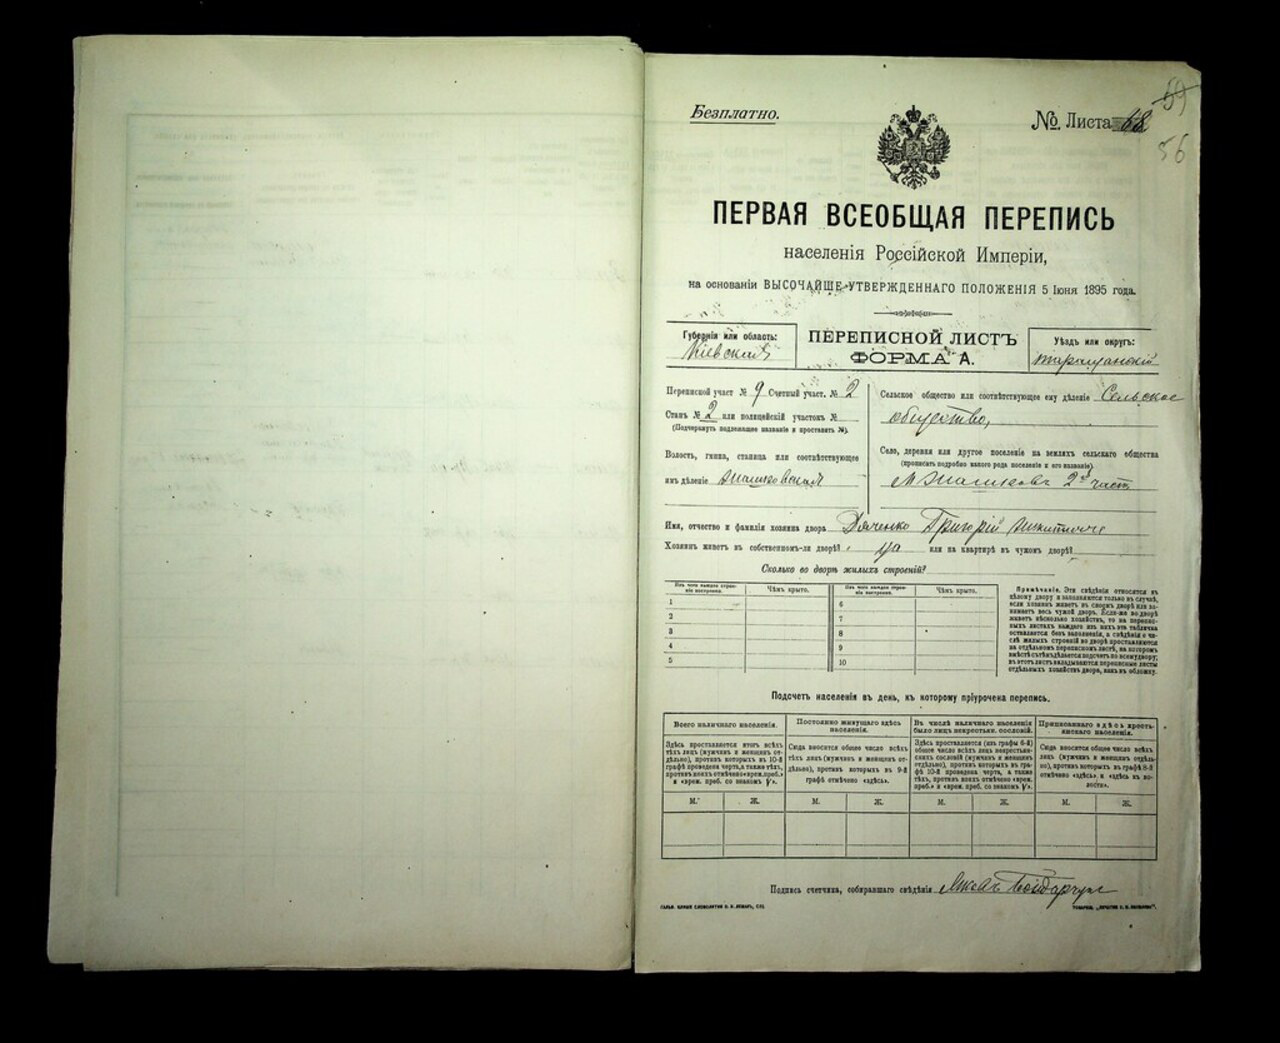 59
Безплатно.
№. Листа 68
56
ПЕРВАЯ ВСЕОБЩАЯ ПЕРЕПИСЬ
населенія Россійской Имперіи,
на основаніи ВЫСОЧАЙШЕ-УТВЕРЖДЕННАГО ПОЛОЖЕНІЯ 5 Іюня 1895 года.
Губернія или область:
Кіевская
ПЕРЕПИСНОЙ ЛИСТЪ
ФОРМА А.
Уѣздъ или округъ:
Таращанскій
Переписной участ № 9 Счетный участ. № 2
Станъ № 2 или полицейскій участокъ №
(Подчеркнуть подлежащее названіе и проставить №).
Волость, гмина, станица или соотвѣтствующее
имъ дѣленіе
Сельское общество или соотвѣтствующее ему дѣленіе Сельское
общество,
Село, деревня или другое поселеніе на земляхъ сельскаго общества
(прописать подробно какого рода поселеніе и его названіе).
2я част
Имя, отчество и фамилія хозяина двора Дяченко Григорій Никитовъ
Хозяинъ живетъ въ собственномъ-ли дворѣ? да или на квартирѣ въ чужомъ дворѣ?
Сколько во дворѣ жилыхъ строеній?
Изъ чего каждое строеніе построено.
Чѣмъ крыто.
Изъ чего каждое строеніе построено.
Чѣмъ крыто.
1
2
3
4
5
6
7
8
9
10
Примѣчаніе. Эти свѣдѣнія относятся къ
цѣлому двору и заполняются только въ случаѣ,
если хозяинъ живетъ въ своемъ дворѣ или за-
нимаетъ весь чужой дворъ. Если-же во дворѣ
живетъ нѣсколько хозяйствъ, то на перепис-
ныхъ листахъ каждаго изъ нихъ эта табличка
оставляется безъ заполненія, а свѣдѣнія о чи-
слѣ жилыхъ строеній во дворѣ проставляются
на отдѣльномъ переписномъ листѣ, на которомъ
вмѣстѣ съ тѣмъ дѣлается подсчетъ по всему двору;
въ этотъ листъ вкладываются переписные листы
отдѣльныхъ хозяйствъ двора, какъ въ обложку.
Подсчетъ населенія въ день, къ которому пріурочена перепись.
Всего наличнаго населенія.
Здѣсь проставляется итогъ всѣхъ
тѣхъ лицъ (мужчинъ и женщинъ от-
дѣльно), противъ которыхъ въ 10-й
графѣ проведена черта, а также тѣхъ,
противъ коихъ отмѣчено «врем. преб.»
и «врем. преб. со знакомъ V».
Постоянно живущаго здѣсь
населенія.
Сюда вносится общее число всѣхъ
тѣхъ лицъ (мужчинъ и женщинъ от-
дѣльно), противъ которыхъ въ 9-й
графѣ отмѣчено «здѣсь».
Въ числѣ наличнаго населенія
было лицъ некрестьян. сословій.
Здѣсь проставляется (изъ графы 6-й)
общее число всѣхъ лицъ некрестьян-
скихъ сословій (мужчинъ и женщинъ
отдѣльно), противъ которыхъ въ гра-
фѣ 10-й проведена черта, а также
тѣхъ, противъ коихъ отмѣчено «врем.
преб.» и «врем. преб. со знакомъ V».
Приписаннаго здѣсь кресть-
янскаго населенія.
Сюда вносится общее число всѣхъ
лицъ (мужчинъ и женщинъ отдѣль-
но), противъ которыхъ въ графѣ 8-й
отмѣчено «здѣсь» и «здѣсь въ во-
лости».
М. Ж. М. Ж. М. Ж. М. Ж.
Подпись счетчика, собиравшаго свѣдѣнія Яковъ Бондарчукъ